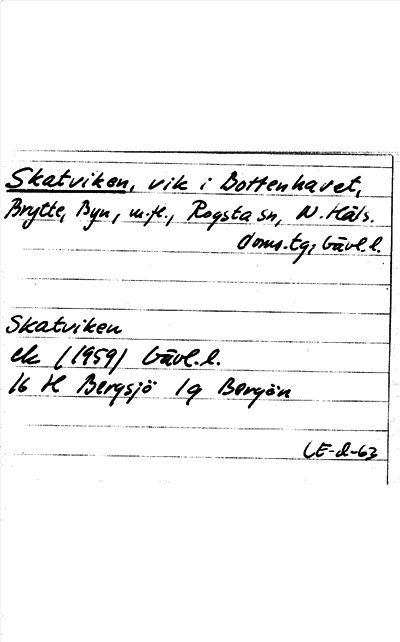 Skatviken, vik i Bottenhavet,
Brytte, Byn, m.fl., Rogsta sn, N. Häls.
doms.tg, Gävl.l.
Skatviken
ek (1959) Gävl.l.
16 H Bergsjö 1g Bergön
LE-d-63